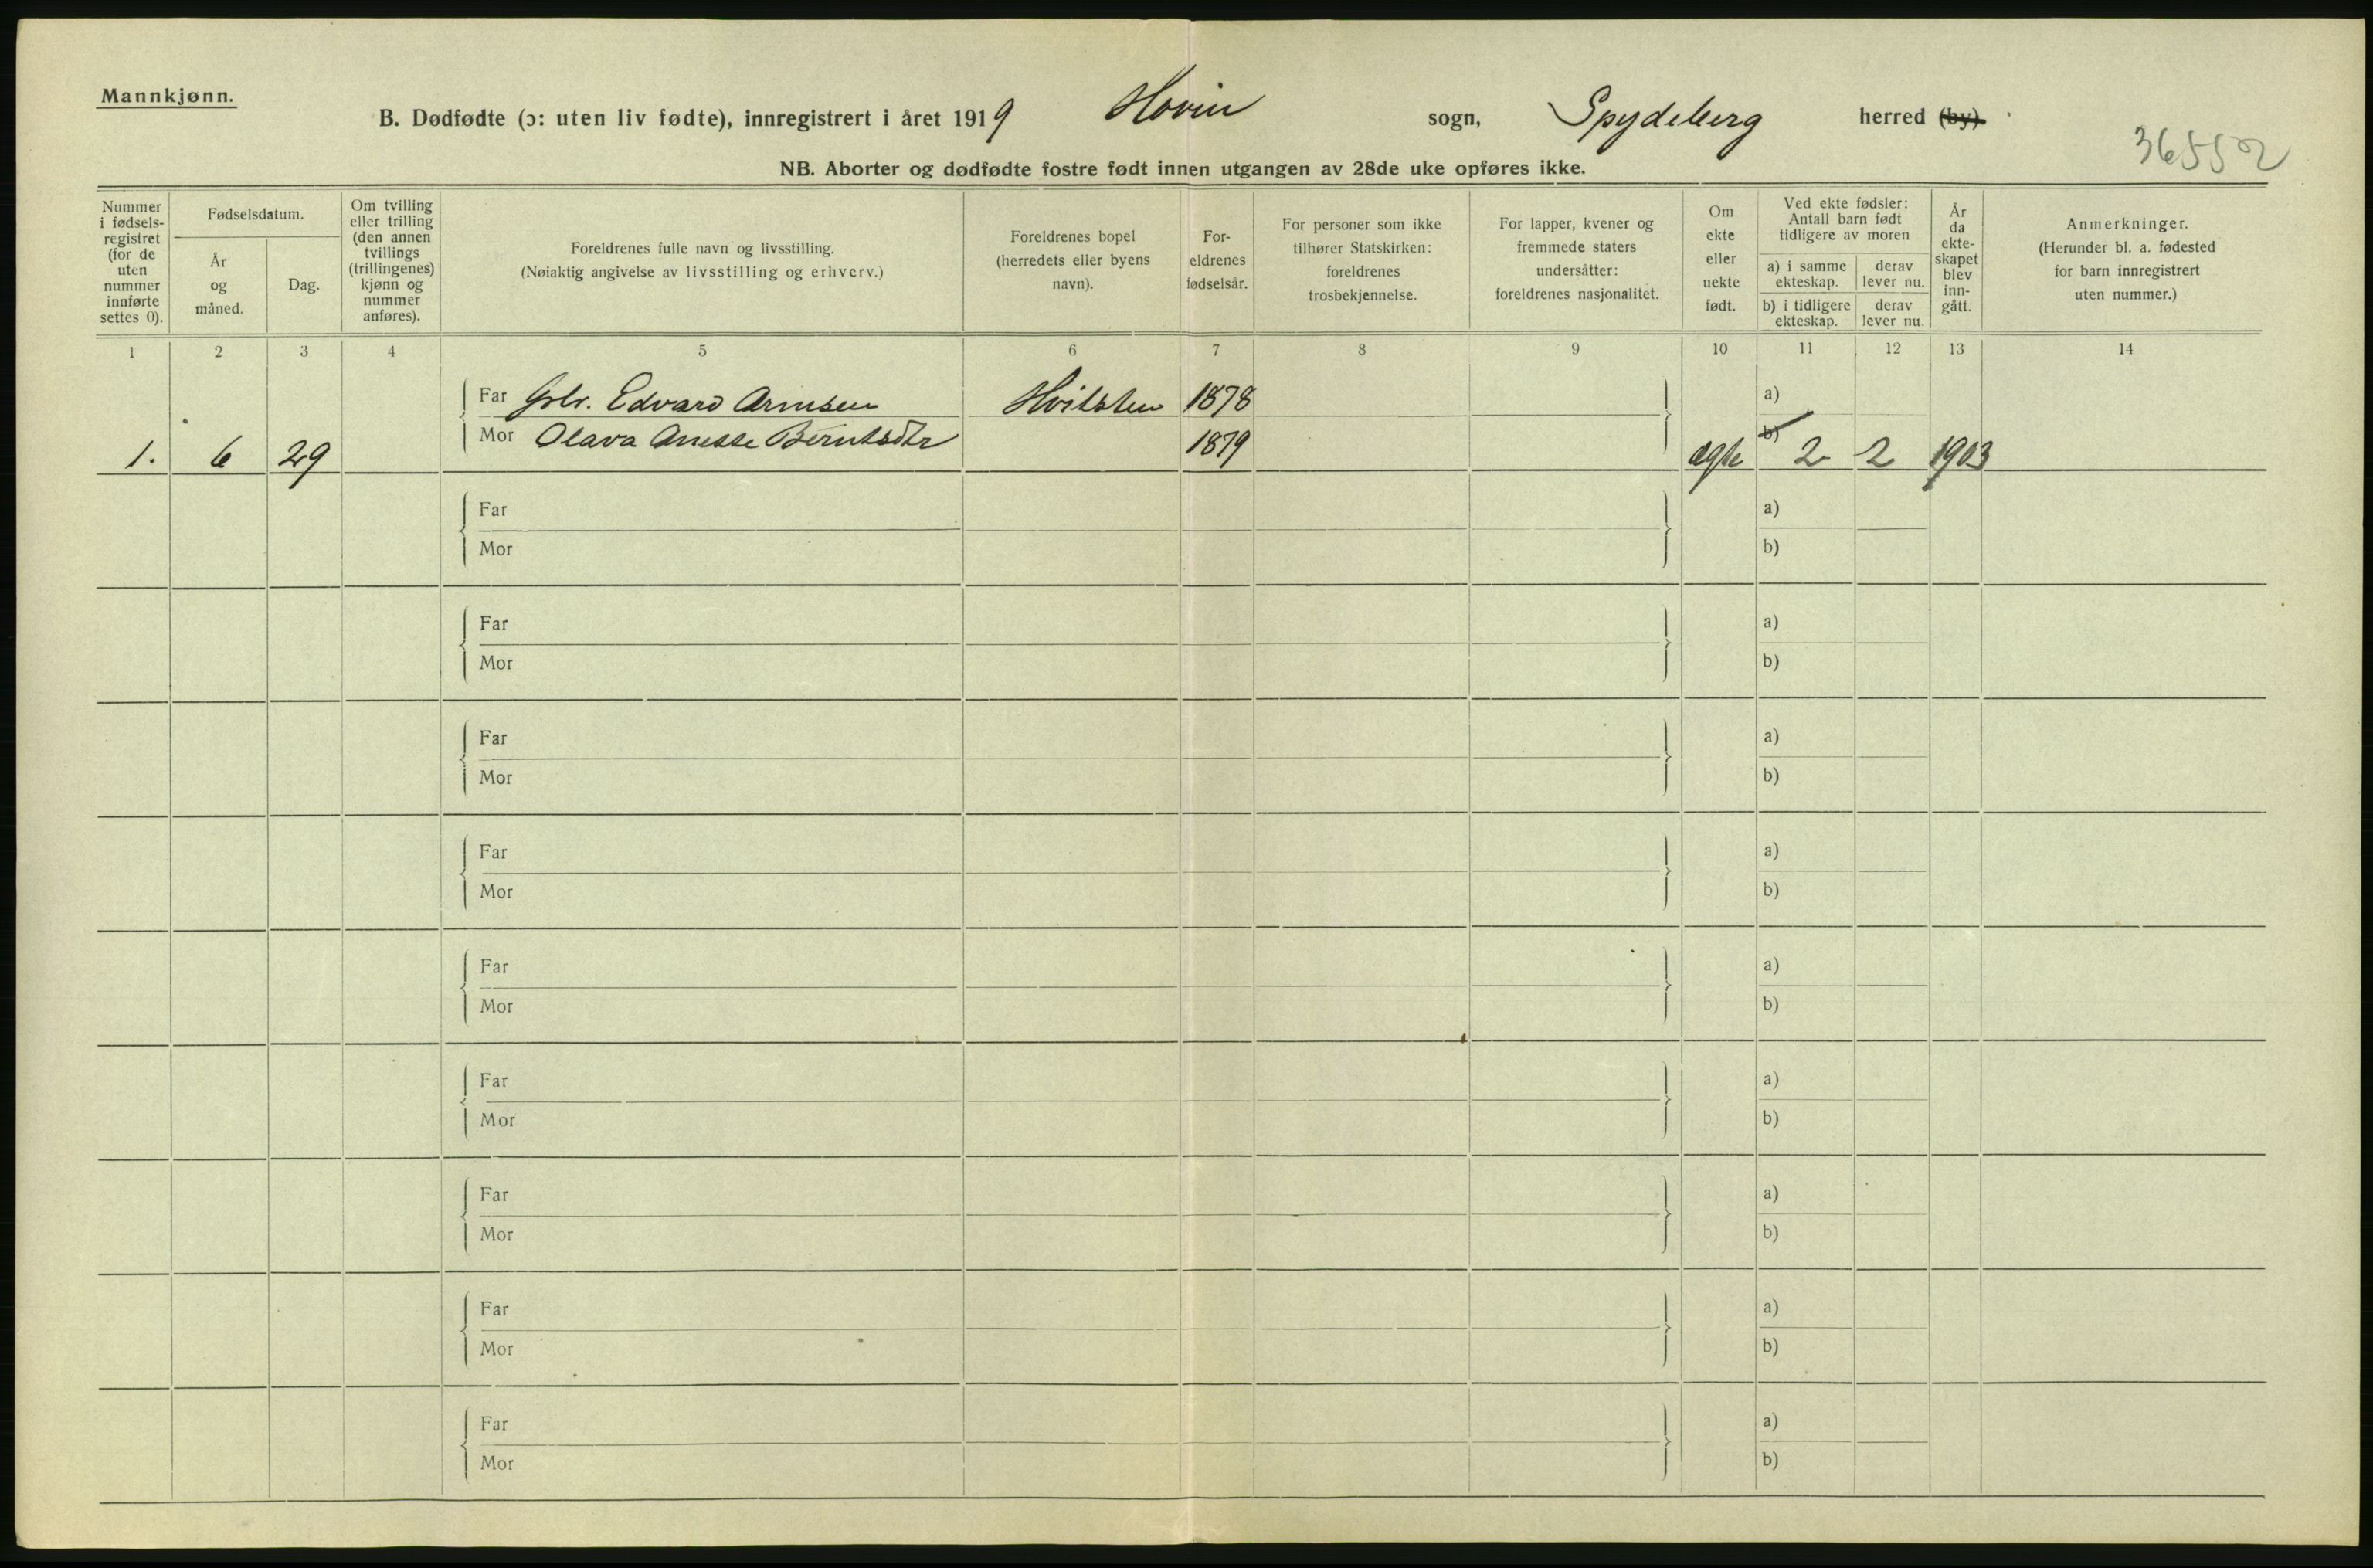 Mannkjønn.
B. Dødfødte (ɔ: uten liv fødte), innregistrert i året 1919 Hovin sogn, Spydeberg herred (by).
36552
NB. Aborter og dødfødte fostre født innen utgangen av 28de uke opføres ikke.
Nummer i fødsels-registret (for de uten nummer innførte settes 0).
Fødselsdatum.
År og måned.
Dag.
Om tvilling eller trilling (den annen tvillings (trillingenes) kjønn og nummer anføres).
Foreldrenes fulle navn og livsstilling.
(Nøiaktig angivelse av livsstilling og erhverv.)
Foreldrenes bopel (herredets eller byens navn).
For-eldrenes fødselsår.
For personer som ikke tilhører Statskirken: foreldrenes trosbekjennelse.
For lapper, kvener og fremmede staters undersåtter: foreldrenes nasjonalitet.
Om ekte eller uekte født.
Ved ekte fødsler: Antall barn født tidligere av moren
a) i samme ekteskap.
derav lever nu.
b) i tidligere ekteskap.
derav lever nu.
År da ekte-skapet blev inn-gått.
Anmerkninger.
(Herunder bl. a. fødested for barn innregistrert uten nummer.)
1 2 3 4 5 6 7 8 9 10 11 12 13 14
Far Edvard Arnesen Hvitsten 1878 a)
Mor Olava Berntsdtr 1879 b)
1. 6 29 ægte 2 2 1903
Far a)
Mor b)
Far a)
Mor b)
Far a)
Mor b)
Far a)
Mor b)
Far a)
Mor b)
Far a)
Mor b)
Far a)
Mor b)
Far a)
Mor b)
Far a)
Mor b)